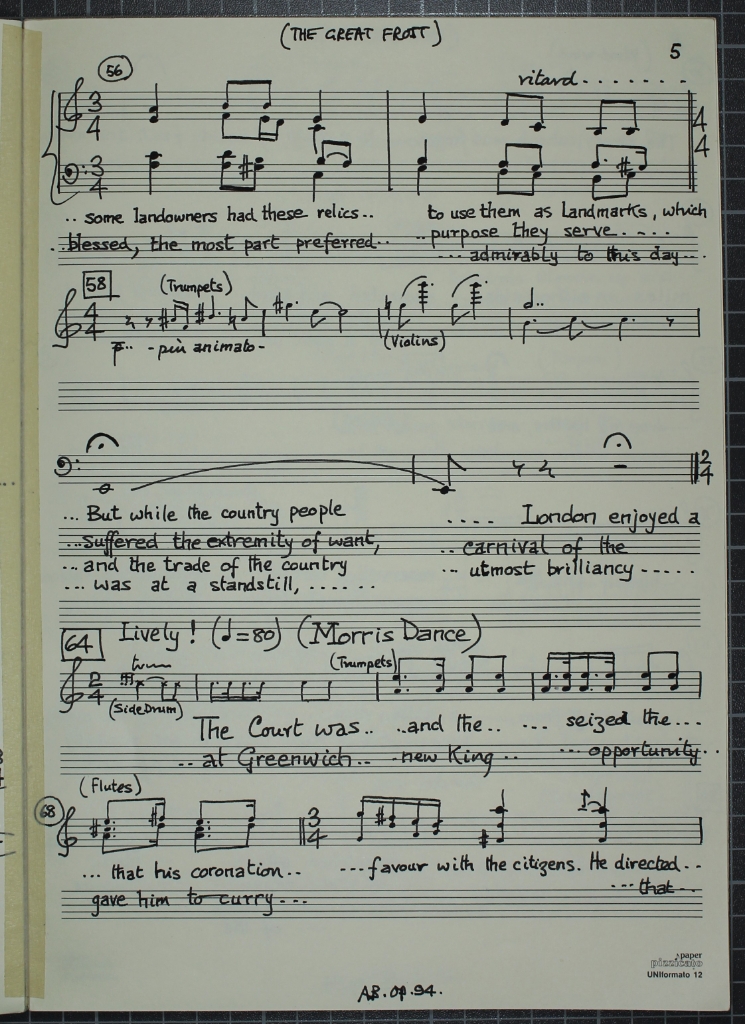 (THE GREAT FROST)
5
56
ritard . . . . . . .
3 4
4 4
3 4
.. some landowners had these relics..
to use them as Landmarks, which
.. blessed, the most part preferred..
.. purpose they serve ....
... admirably to this day...
58
(Trumpets)
4 4
p.. - più animato -
(Violins)
d..
2 4
... But while the country people
.... London enjoyed a
... suffered the extremity of want,
.. carnival of the
... and the trade of the country
... utmost brilliancy .....
... was at a standstill, ......
64 Lively! (♩=80) (Morris Dance)
(Trumpets)
2 4
(Side Drum)
The Court was.. ..and the.. ... seized the...
.. at Greenwich.. -new King .. ... opportunity..
(Flutes)
68
3 4
... that his coronation ..
--- favour with the citizens. He directed ..
gave him to curry ---
--- that --
paper
pizzicato
UNIformato 12
AB. op. 94.